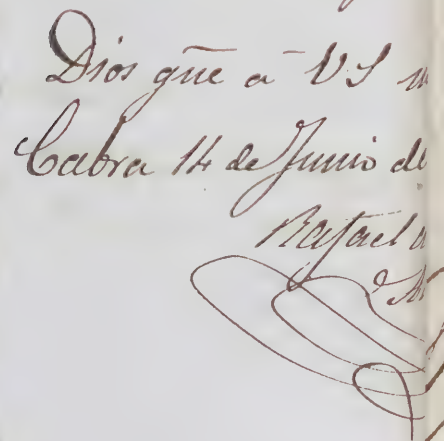 Dios gũe a VS
Cabra 14 de Junio de
Rafael